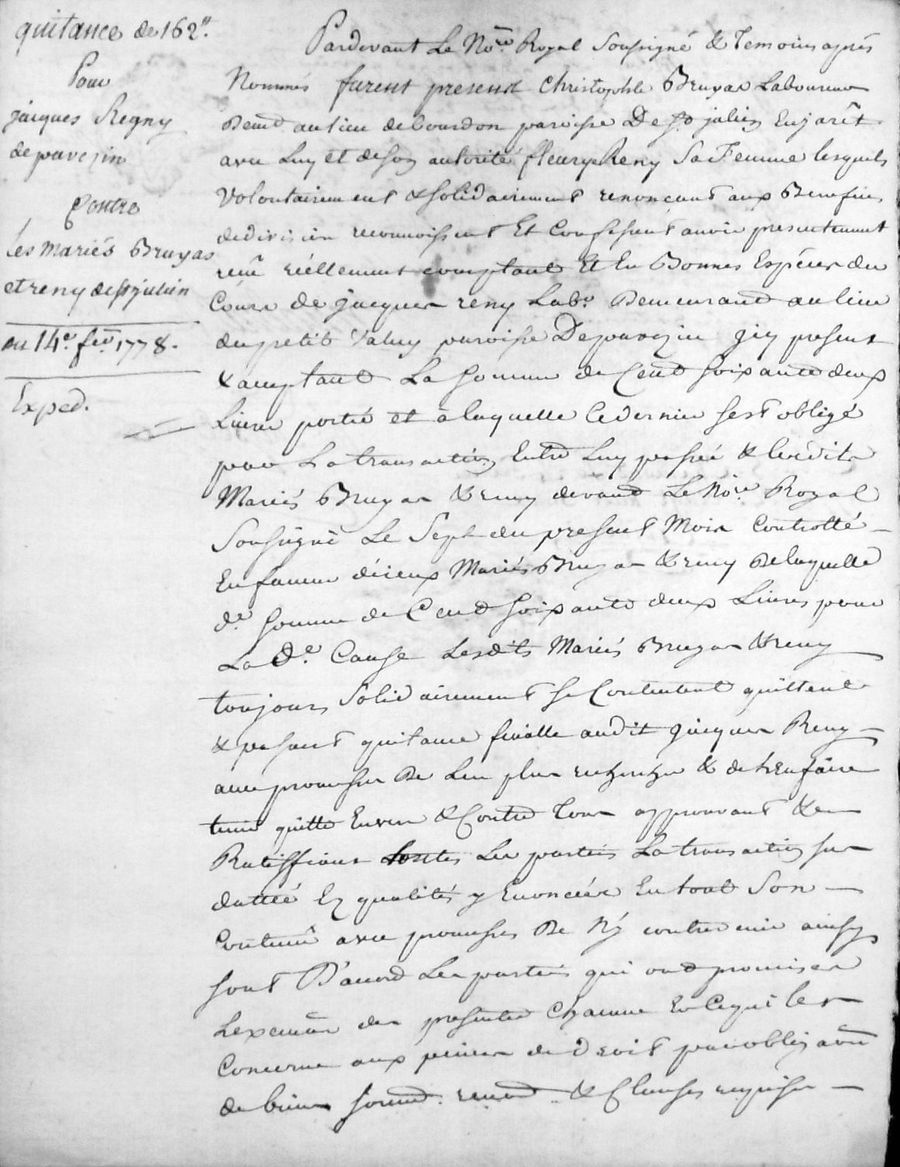 quittance de 162#.
Pour
jacques Regny
de pavezin
Contre
Les mariés Bruyas
et reny de st julien
du 14e. fev. 1778.
Exped.
Pardevant Le Nore. Royal Soussigné & Temoins aprés
Nommés furent present Christophle Bruyas Laboureur
demt. au lieu de bourdon paroisse De St julien En jarêt
avec Luy et de son autorité fleurye Reny Sa Femme lesquels
Volontairement & solidairement renonceant aux Benefice
de division reconnoissent Et Confessent avoir presentement
receu réellement comptant Et En Bonnes Espéces du
Cours de jacques reny Labr. Demeurant au lieu
du petit Valuy paroisse De pavezin Icy present
& acceptant La somme de Cent soixante deux
Livres portée et à laquelle Ce dernier s'est obligé
par La transaction Entre Luy passée & lesdits
Mariés Bruyas & reny devant Le Nore. Royal
Soussigné Le Sept du present Mois Controllé
En faveur d'iceux Mariés Bruyas & reny De laquelle
de. somme de Cent soixante deux Livres pour
La de. Cause Lesdits Mariés Bruyas & reny
toujours Solidairement se Contentent quittent
& passent quitance finalle audit jacques Reny
avec promesse De Ten faire
tenir quitte Envers & Contre Tous approuvant & en
Ratiffiant Les parties La transaction sus
dattée Ez qualités y Enoncées En tout Son
Contenu avec promesses De N'y contrevenir ainsy
sont D'accord Les parties qui ont promis
L'exécution des presentes Chacune En Ce qui les
Concerne aux peines de Droit par obligaon
de biens soumd. renond. & Clauses requises